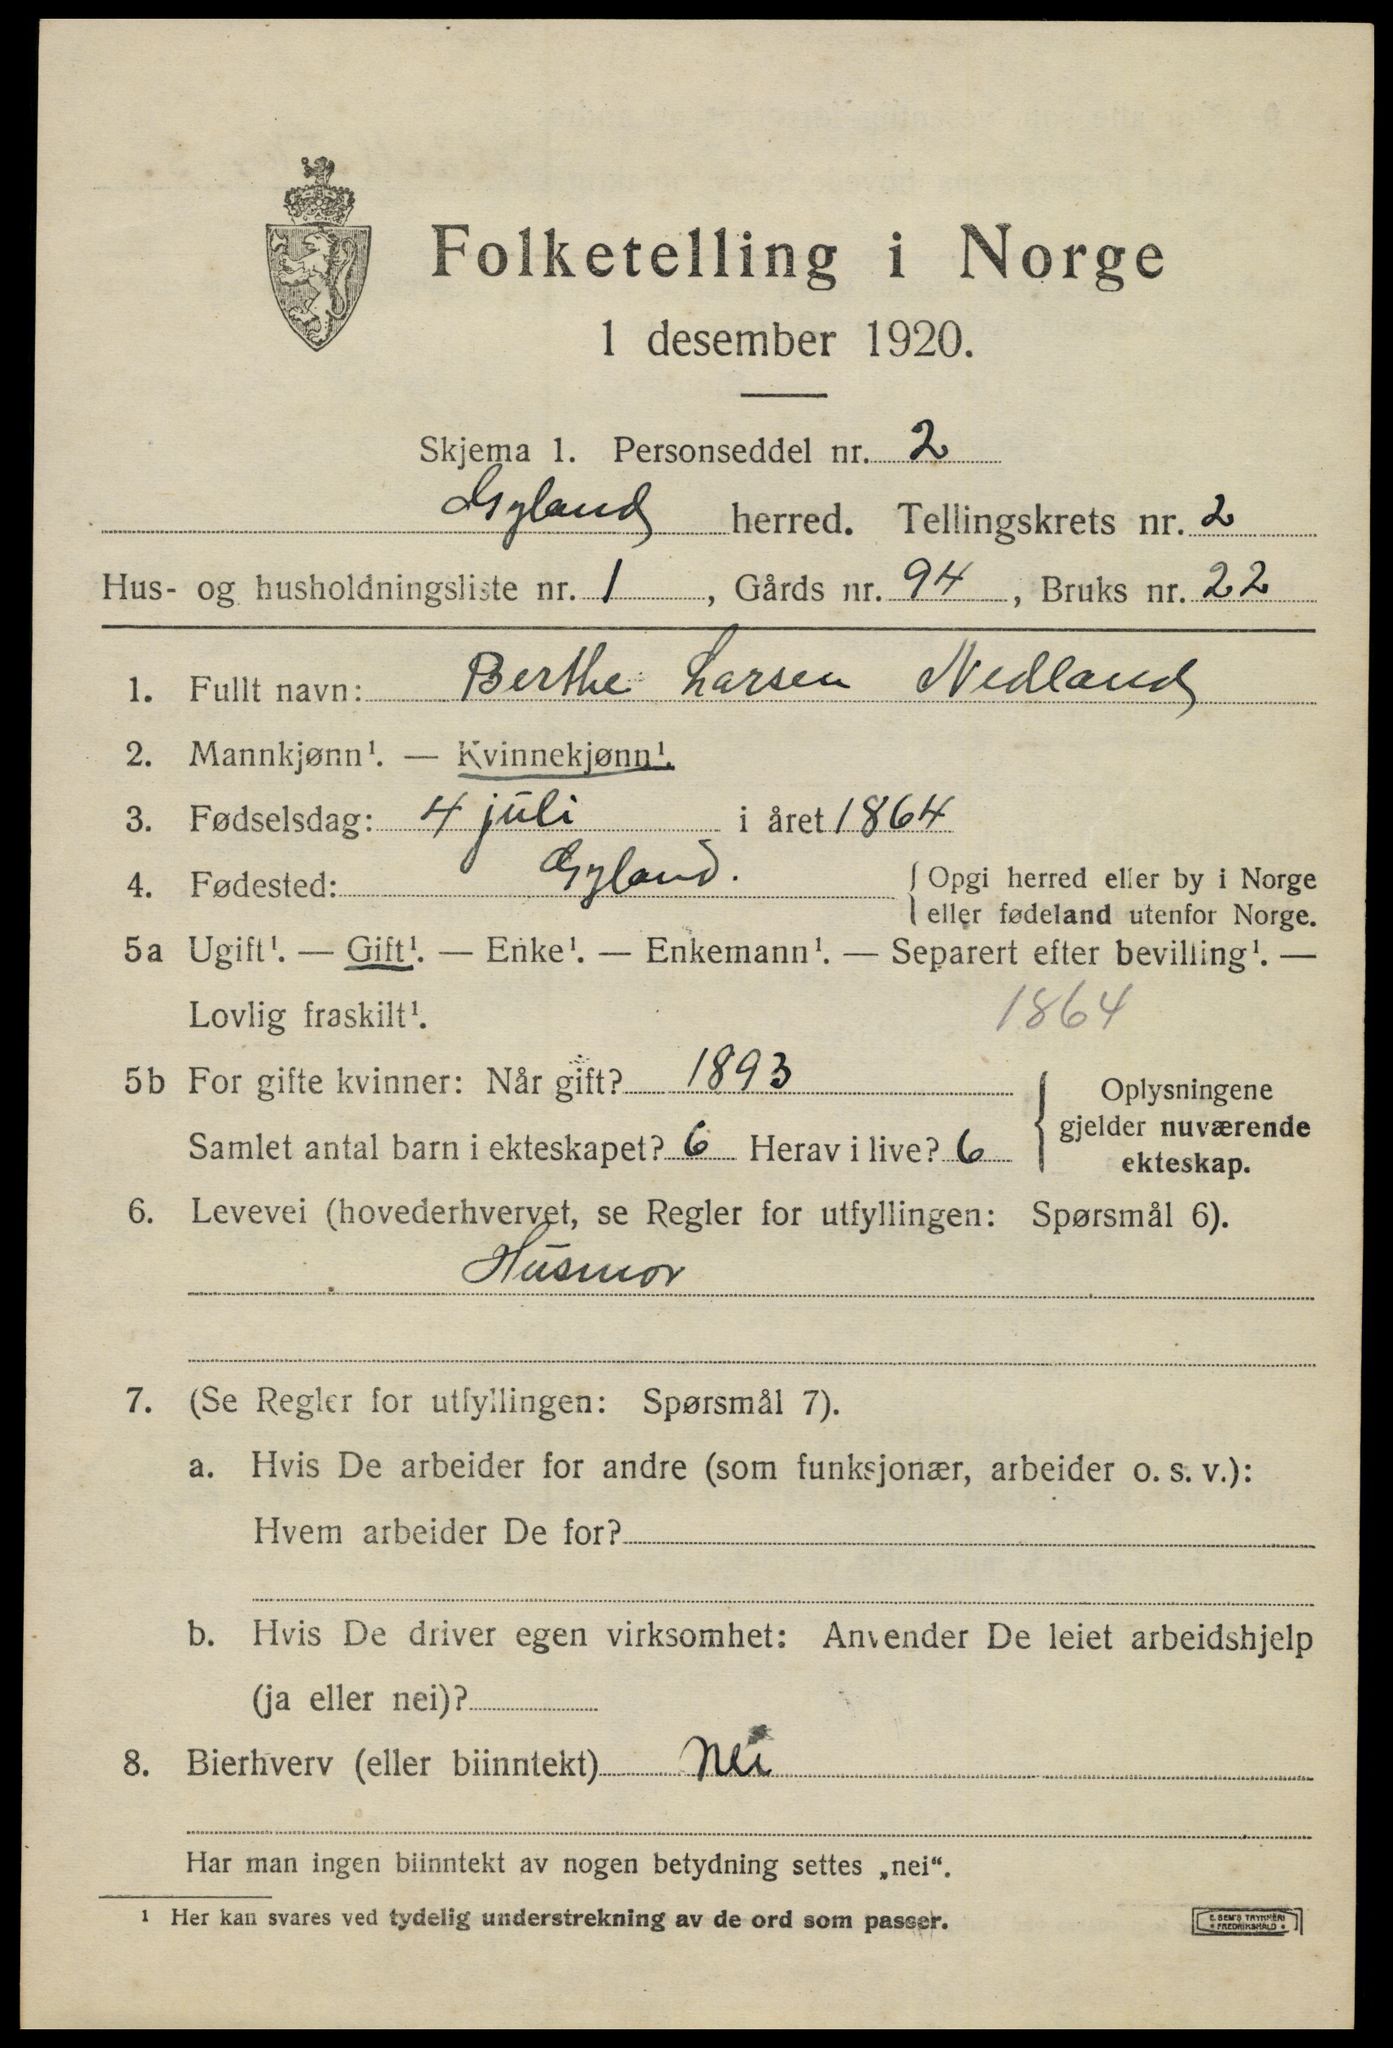 Folketelling i Norge
1 desember 1920.
Skjema 1. Personseddel nr. 2
Gyland herred. Tellingskrets nr. 2
Hus- og husholdningsliste nr. 1, Gårds nr. 94, Bruks nr. 22
1. Fullt navn: Berthe Larsen Nedland
2. Mannkjønn¹. — Kvinnekjønn¹.
3. Fødselsdag: 4 juli i året 1864
4. Fødested: Gyland. { Opgi herred eller by i Norge
eller fødeland utenfor Norge.
5a Ugift¹. — Gift¹. — Enke¹. — Enkemann¹. — Separert efter bevilling¹. —
Lovlig fraskilt¹. 1864
5b For gifte kvinner: Når gift? 1893
Samlet antal barn i ekteskapet? 6 Herav i live? 6
{ Oplysningene
gjelder nuværende
ekteskap.
6. Levevei (hovederhvervet, se Regler for utfyllingen: Spørsmål 6).
Husmor
7. (Se Regler for utfyllingen: Spørsmål 7).
a. Hvis De arbeider for andre (som funksjonær, arbeider o. s. v.):
Hvem arbeider De for?
b. Hvis De driver egen virksomhet: Anvender De leiet arbeidshjelp
(ja eller nei)?
8. Bierhverv (eller biinntekt) Nei
Har man ingen biinntekt av nogen betydning settes „nei“.
¹ Her kan svares ved tydelig understrekning av de ord som passer.
E. SEM'S TRYKKERI
• FREDRIKSHALD •